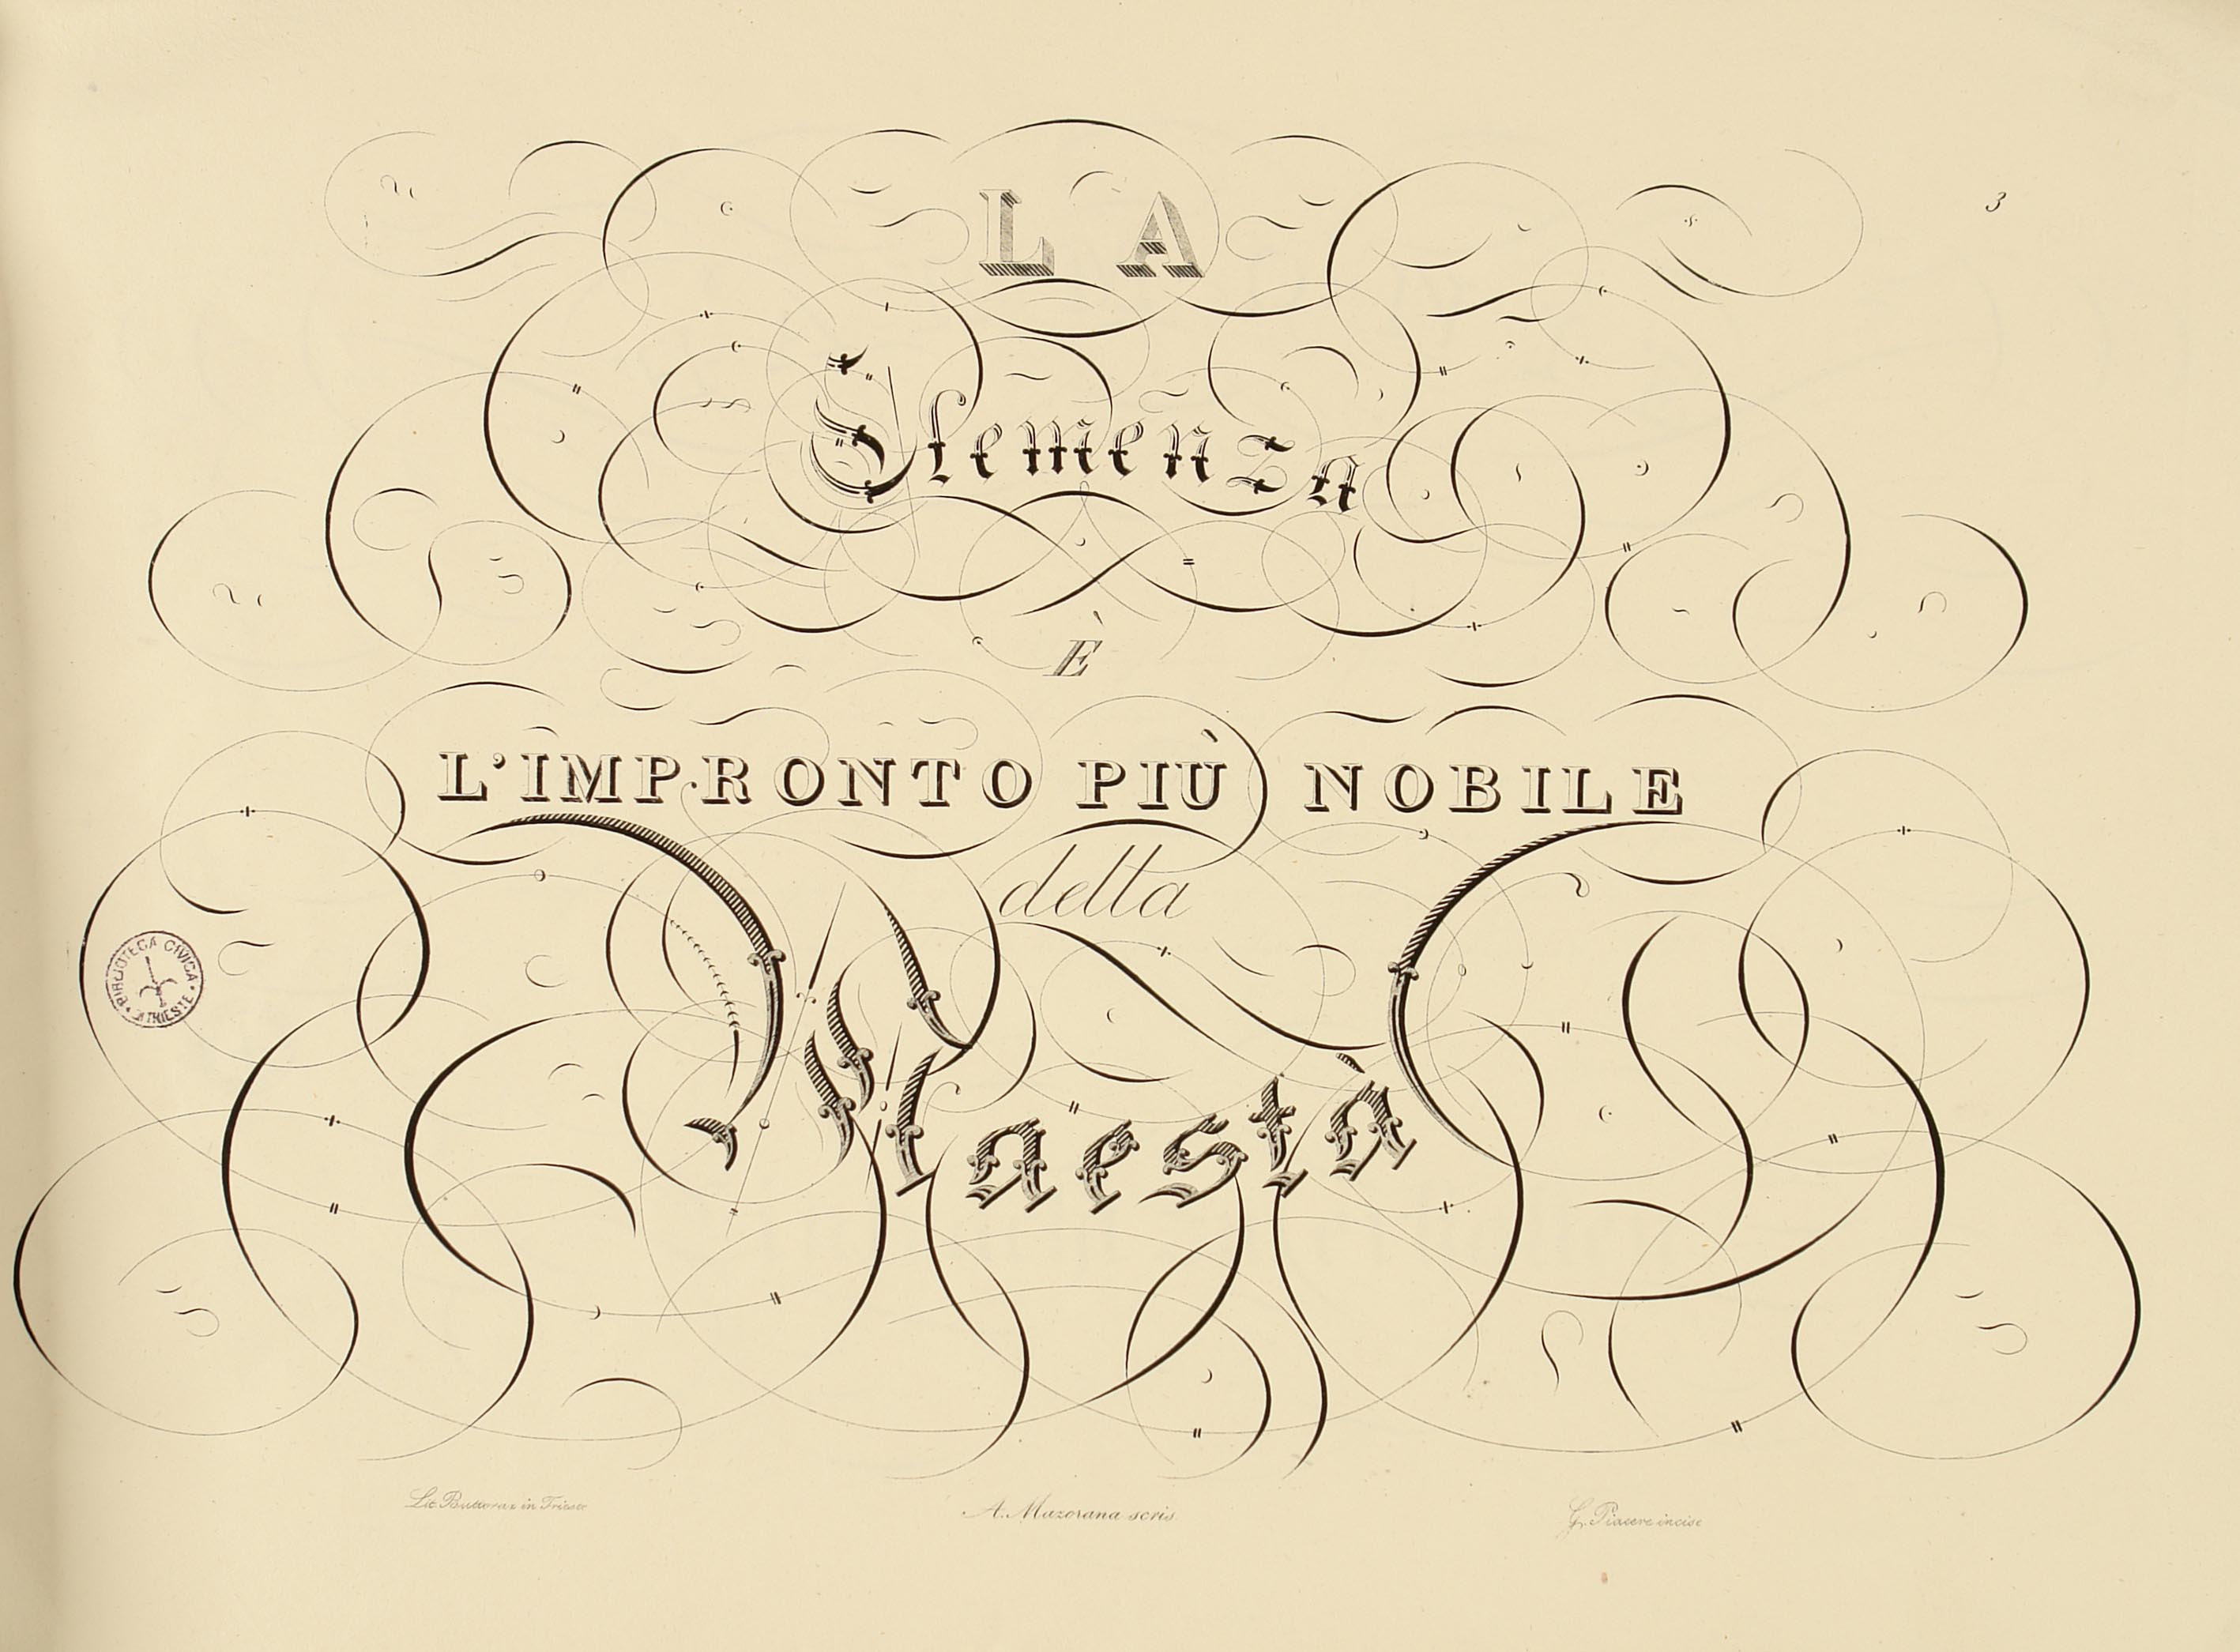 3
LA
Clemenza
È
L'IMPRONTO PIÙ NOBILE
della
Maestà
BIBLIOTECA CIVICA
TRIESTE
Lit. Buttoraz in Trieste
A. Mazorana scris.
G. Piacere incise